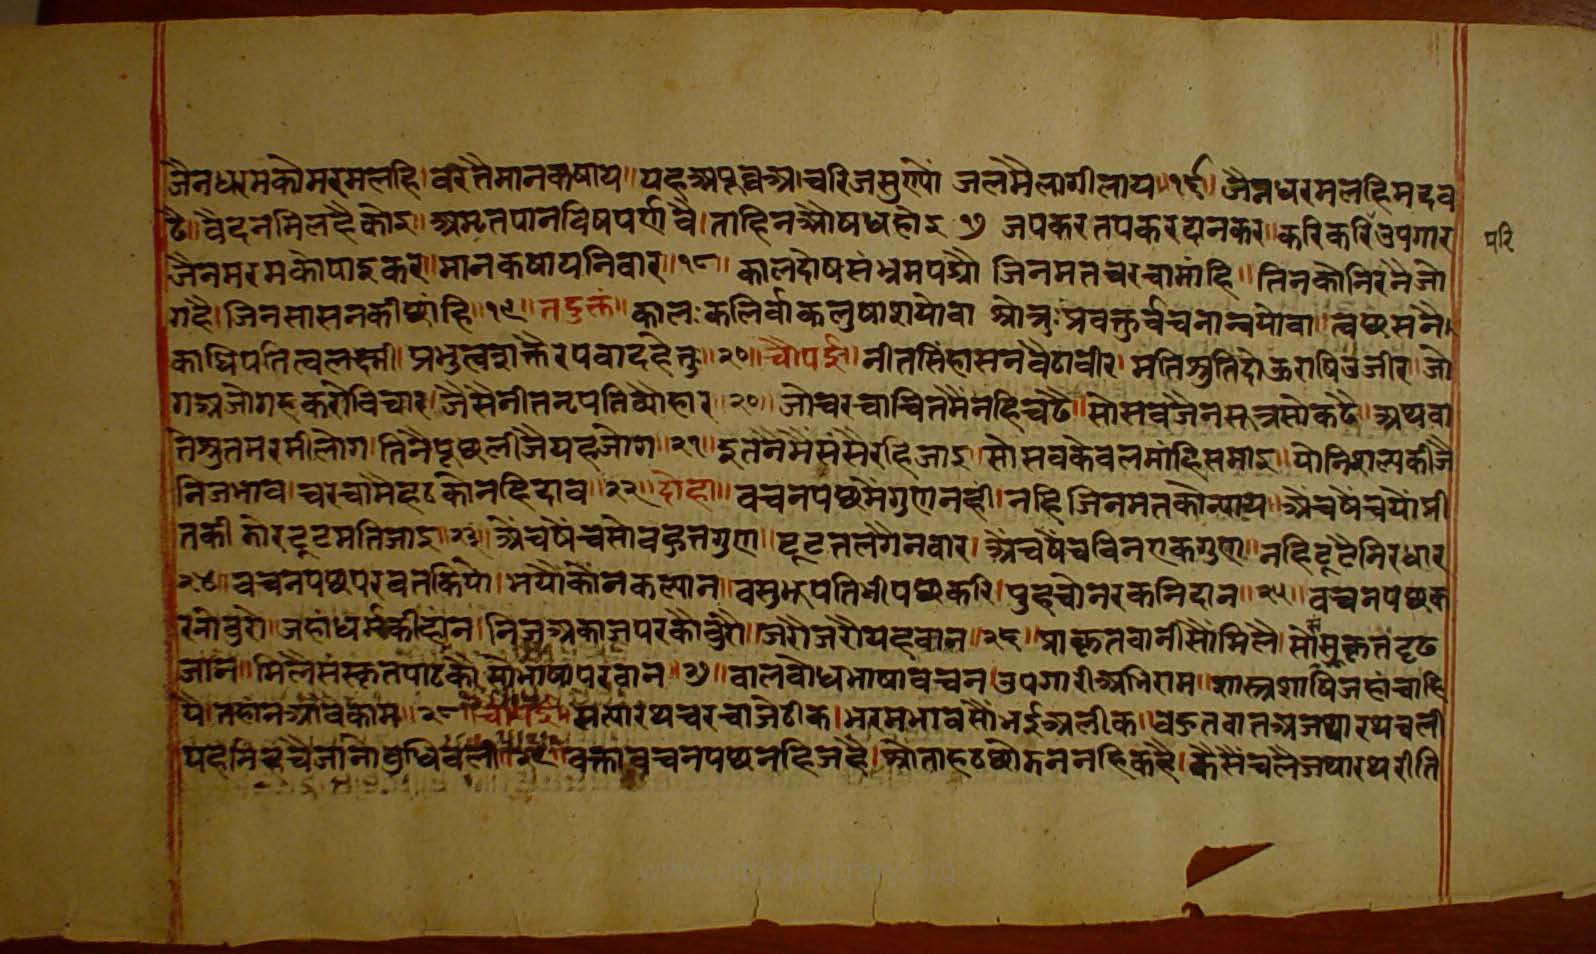 जैनधरमकौमरमलहि।वरतैमानकषाय॥यहअपूर्वअ।चरिजसुण्यौं जलमैलागीलाय॥१६॥जैनधरमलहिमदव
ढै॥वैदनमिलहैकोइ॥अमृतपानविषपर्णवै।ताहिनऔषधहोइ १७ जपकरतपकरदानकर॥करिकरिउपगार
परि
जैनमरमकोपाइकर॥मानकषायनिवार॥१८॥ कालदोषसंभ्रमपऱ्यौ जिनमतचरचामांहि॥तिनकौनिरनैजो
गहै।जिनसासनकीछांहि॥१९॥तदुक्तं॥कालःकलिर्वाकलुषाशयोवा श्रोत्रुःप्रवक्तुर्वचनान्वयोवा॥त्वछासनै।
काधिपतित्वलक्ष्मी।प्रभुत्वशक्तैरपवादहेतुः॥२०॥चौपई॥नीतसिंहासनबैठावीर।मतिश्रुतिदोऊराषिउजीर।जो
गअजोगहकरोविचार।जैसैनीतनृपतिव्यौहार॥२०॥जोचरचाचितमैंनहिचढै॥सोसबजैनसूत्रस्योकढै॥अथवा
तेश्रुतमरमीलोग।तिनैपूछलीजैयहजोग॥२१॥इतनैमैंसंसैरहिजाइ।सोसबकेवलमांहिसमाइ॥योनिशल्यकीजै
निजभाव।चरचामैहठकोनहिदाव॥२२॥दोहा॥वचनपषमेंगुणनही।नहिजिनमतकौन्याय॥अैंचषैंचयौंप्री
तकी तोरटूटमतिजाइ॥२३॥अैंचषैंचसोबहुतगुण॥टूटतलगैनवार।अैंचषैंचविनएकगुण।नहिटूटैनिरधार
२४ वचनपषपरवतकियो।भयौकौनकल्यान॥वसुभूपतिभीपषकरि।पुहचोनरकनिदान॥२५॥वचनपषक
रनोबुरो॥जहांधर्मकीहान।निजअकाजपरकौबुरौ।जरौजरौयहबान॥२६॥प्राकृतवानीसौंमिलै।सोसुकृतदृढ
जान॥मिलैसंस्कृतपाठकै।सोभाषापरवान॥२७॥बालबोधभाषावचन।उपगारीअभिराम॥शास्त्रशाषिजहांचाहि
यै।तहांनआवैकाम॥२८॥चौपई॥सत्यारथचरचाजेठीक।भरमभावसौंभईअलीक॥बहुतबातअजथारथचली
यहनिहचैजांनोबुधिवली॥२९॥वक्तावचनपषनहिजहै।श्रोताहठछोडननहिकहै।कैसैंचलैजथारथरीति